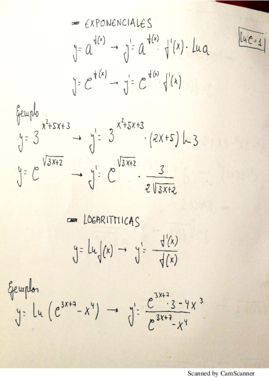 - EXPONENCIALES
ln e = 1
y = a^f(x) → y' = a^f(x) · f'(x) · Ln a
y = e^f(x) → y' = e^f(x) · f'(x)
Ejemplo
y = 3^x²+5x+3 → y' = 3^x²+5x+3 · (2x+5) ln 3
y = e^√3x+2 → y' = e^√3x+2 · 3 / 2√3x+2
- LOGARITMICAS
y = Ln f(x) → y' = f'(x) / f(x)
Ejemplos
y = Ln (e^3x+7 - x⁴) → y' = e^3x+7 · 3 - 4x³ / e^3x+7 - x⁴
Scanned by CamScanner